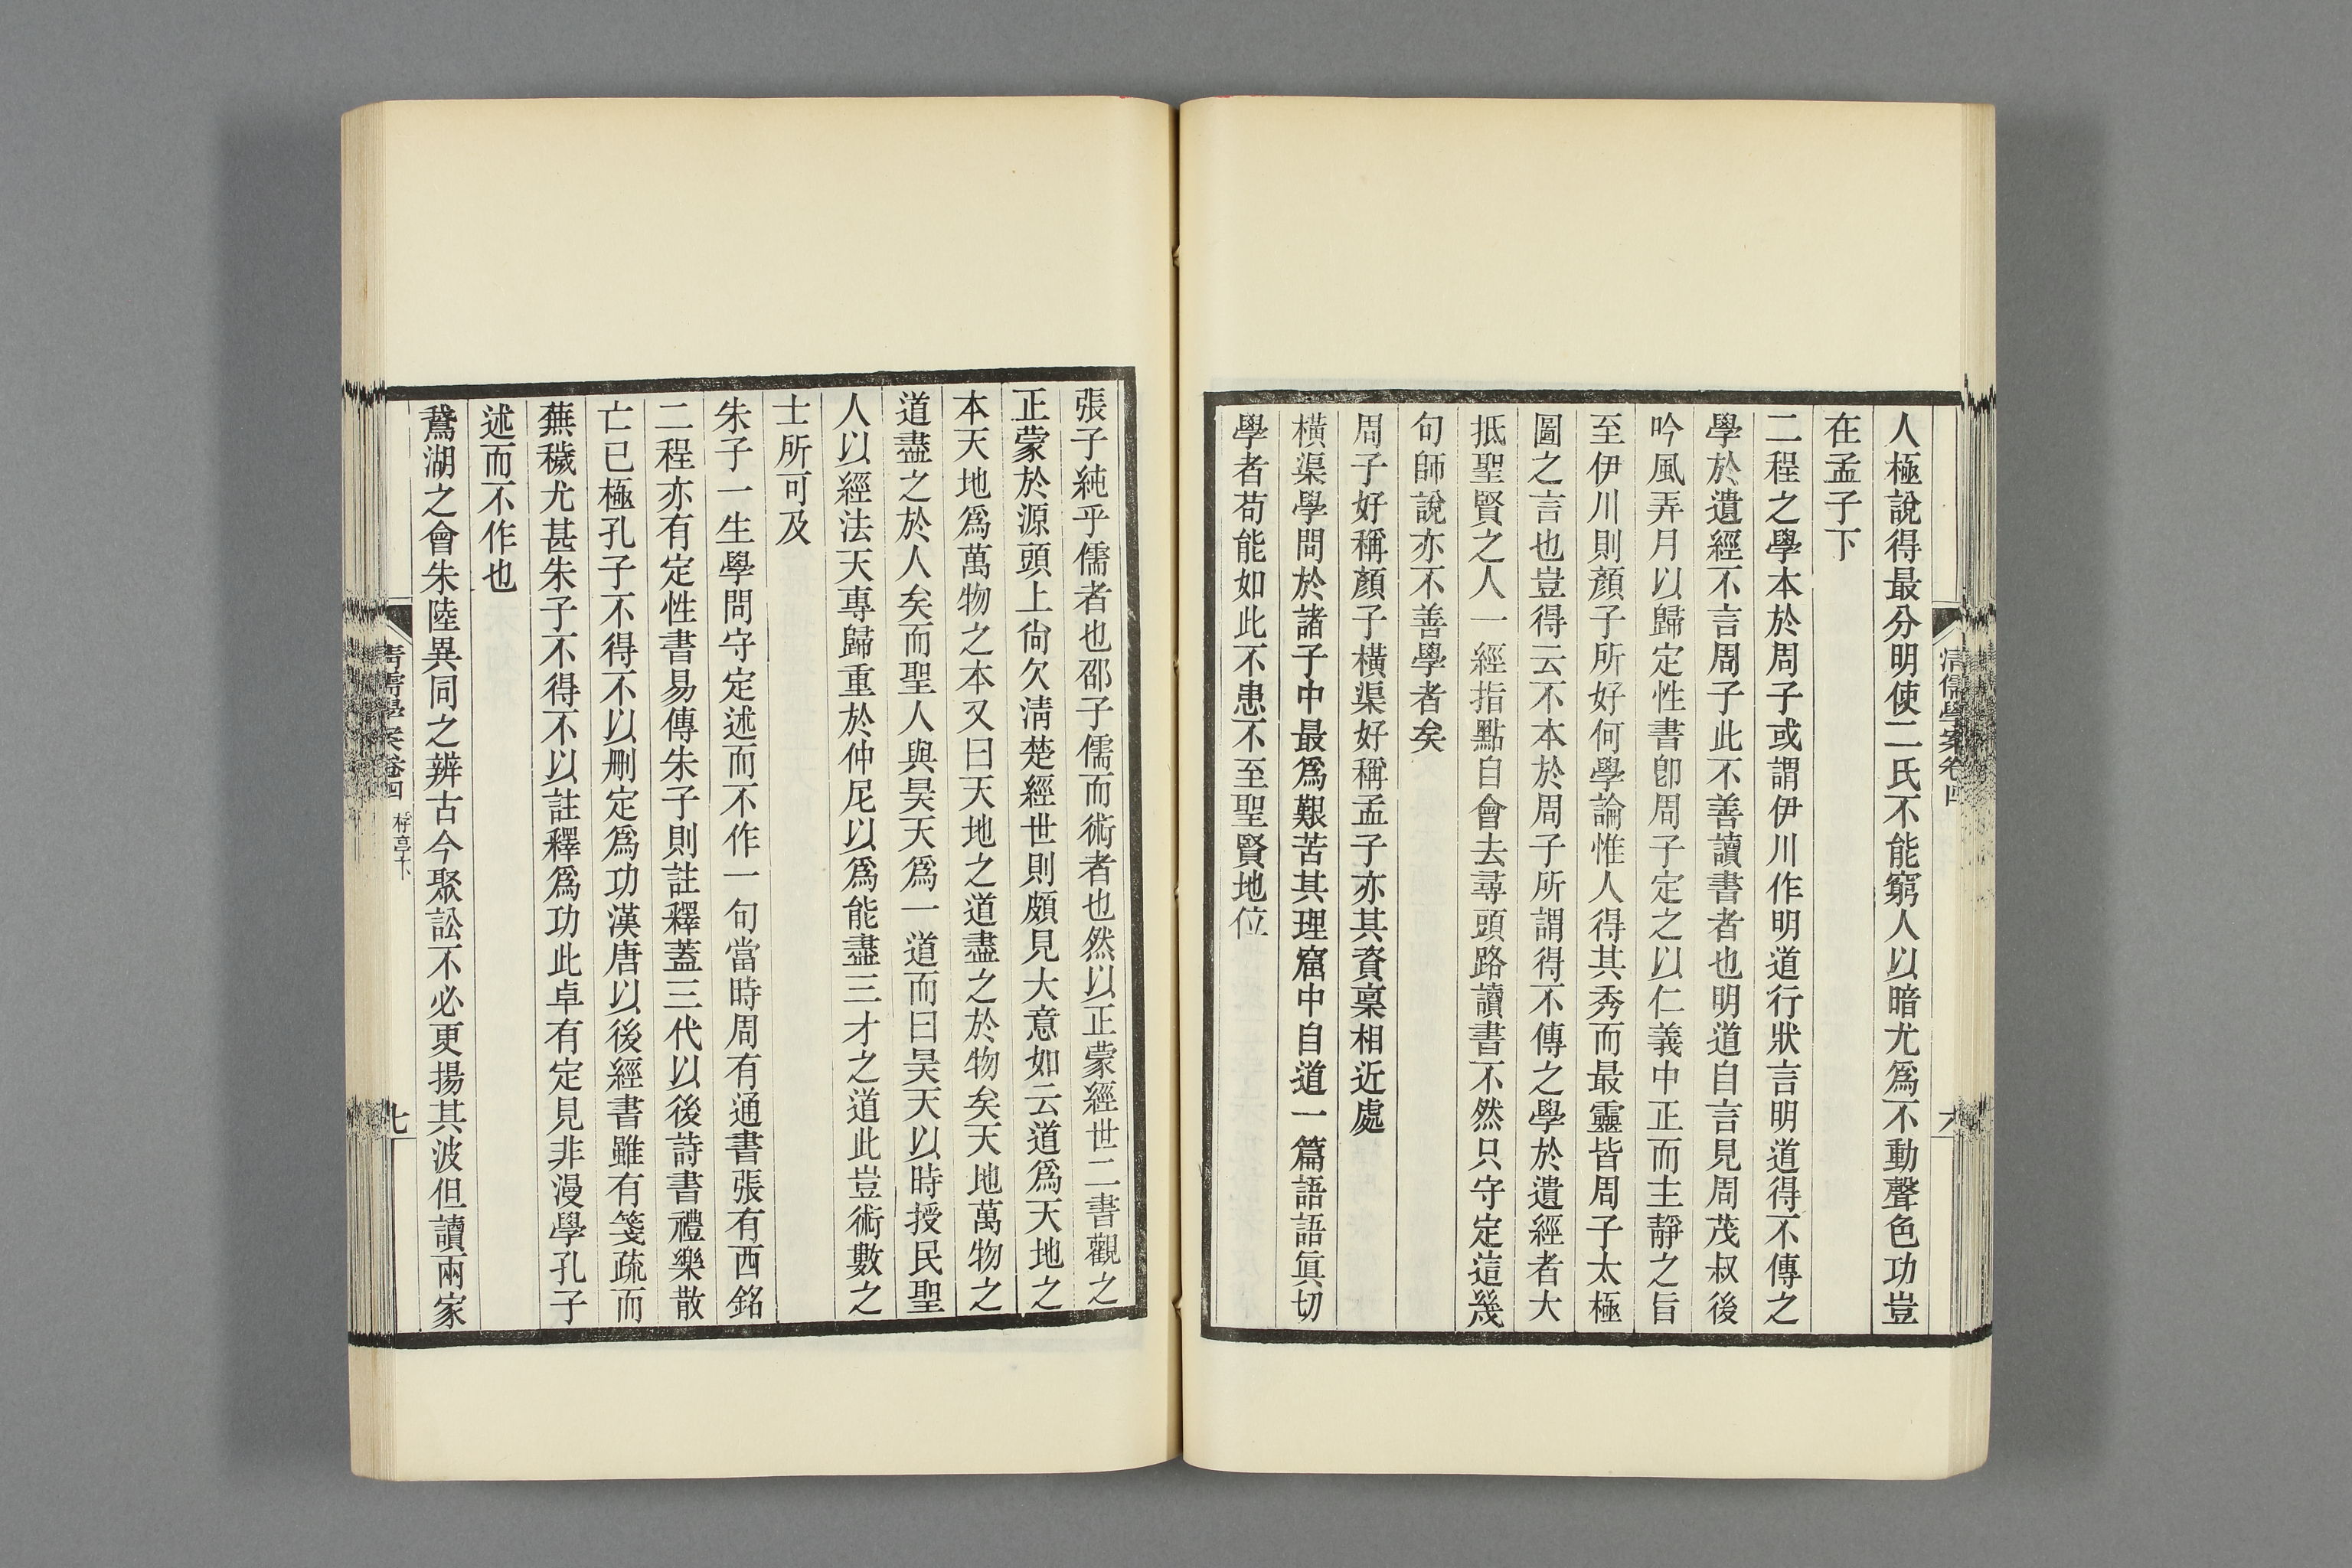 清儒學案卷四
六
人極說得最分明使二氏不能窮人以暗尤爲不動聲色功豈
在孟子下
二程之學本於周子或謂伊川作明道行狀言明道得不傳之
學於遺經不言周子此不善讀書者也明道自言見周茂叔後
吟風弄月以歸定性書卽周子定之以仁義中正而主靜之旨
至伊川則顏子所好何學論惟人得其秀而最靈皆周子太極
圖之言也豈得云不本於周子所謂得不傳之學於遺經者大
抵聖賢之人一經指點自會去尋頭路讀書不然只守定這幾
句師說亦不善學者矣
周子好稱顏子橫渠好稱孟子亦其資稟相近處
橫渠學問於諸子中最爲艱苦其理窟中自道一篇語語眞切
學者苟能如此不患不至聖賢地位
張子純乎儒者也邵子儒而術者也然以正蒙經世二書觀之
正蒙於源頭上尙欠淸楚經世則頗見大意如云道爲天地之
本天地爲萬物之本又曰天地之道盡之於物矣天地萬物之
道盡之於人矣而聖人與昊天爲一道而曰昊天以時授民聖
人以經法天專歸重於仲尼以爲能盡三才之道此豈術數之
士所可及
朱子一生學問守定述而不作一句當時周有通書張有西銘
二程亦有定性書易傳朱子則註釋蓋三代以後詩書禮樂散
亡已極孔子不得不以刪定爲功漢唐以後經書雖有箋疏而
蕪穢尤甚朱子不得不以註釋爲功此卓有定見非漫學孔子
述而不作也
鵞湖之會朱陸異同之辨古今聚訟不必更揚其波但讀兩家
清儒學案卷四 桴亭下
七